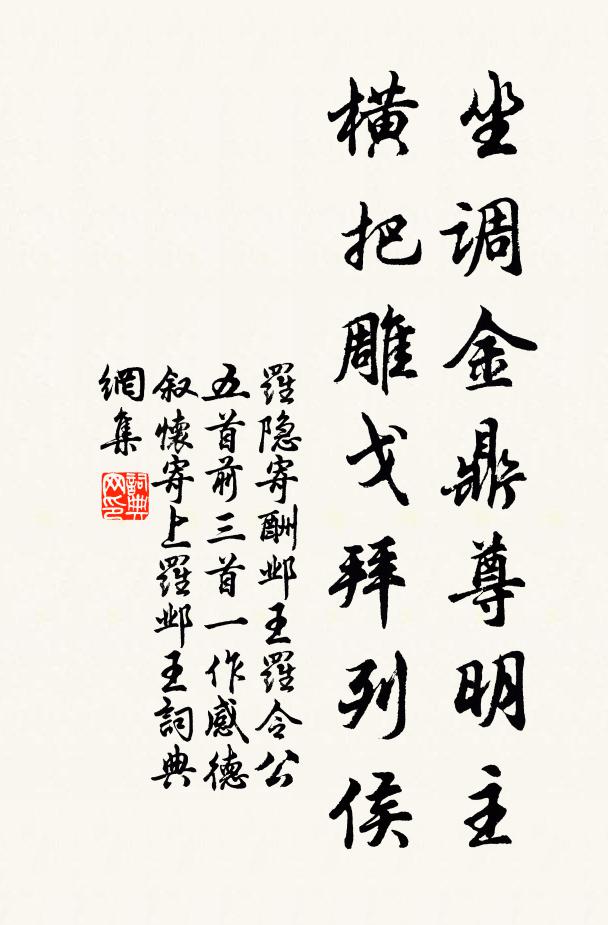 坐调金鼎尊明主
横把雕戈拜列侯
羅隐寄酬邺王羅令公
五首前三首一作感德
叙懷寄上羅邺王詞典
網集
詞典
网印